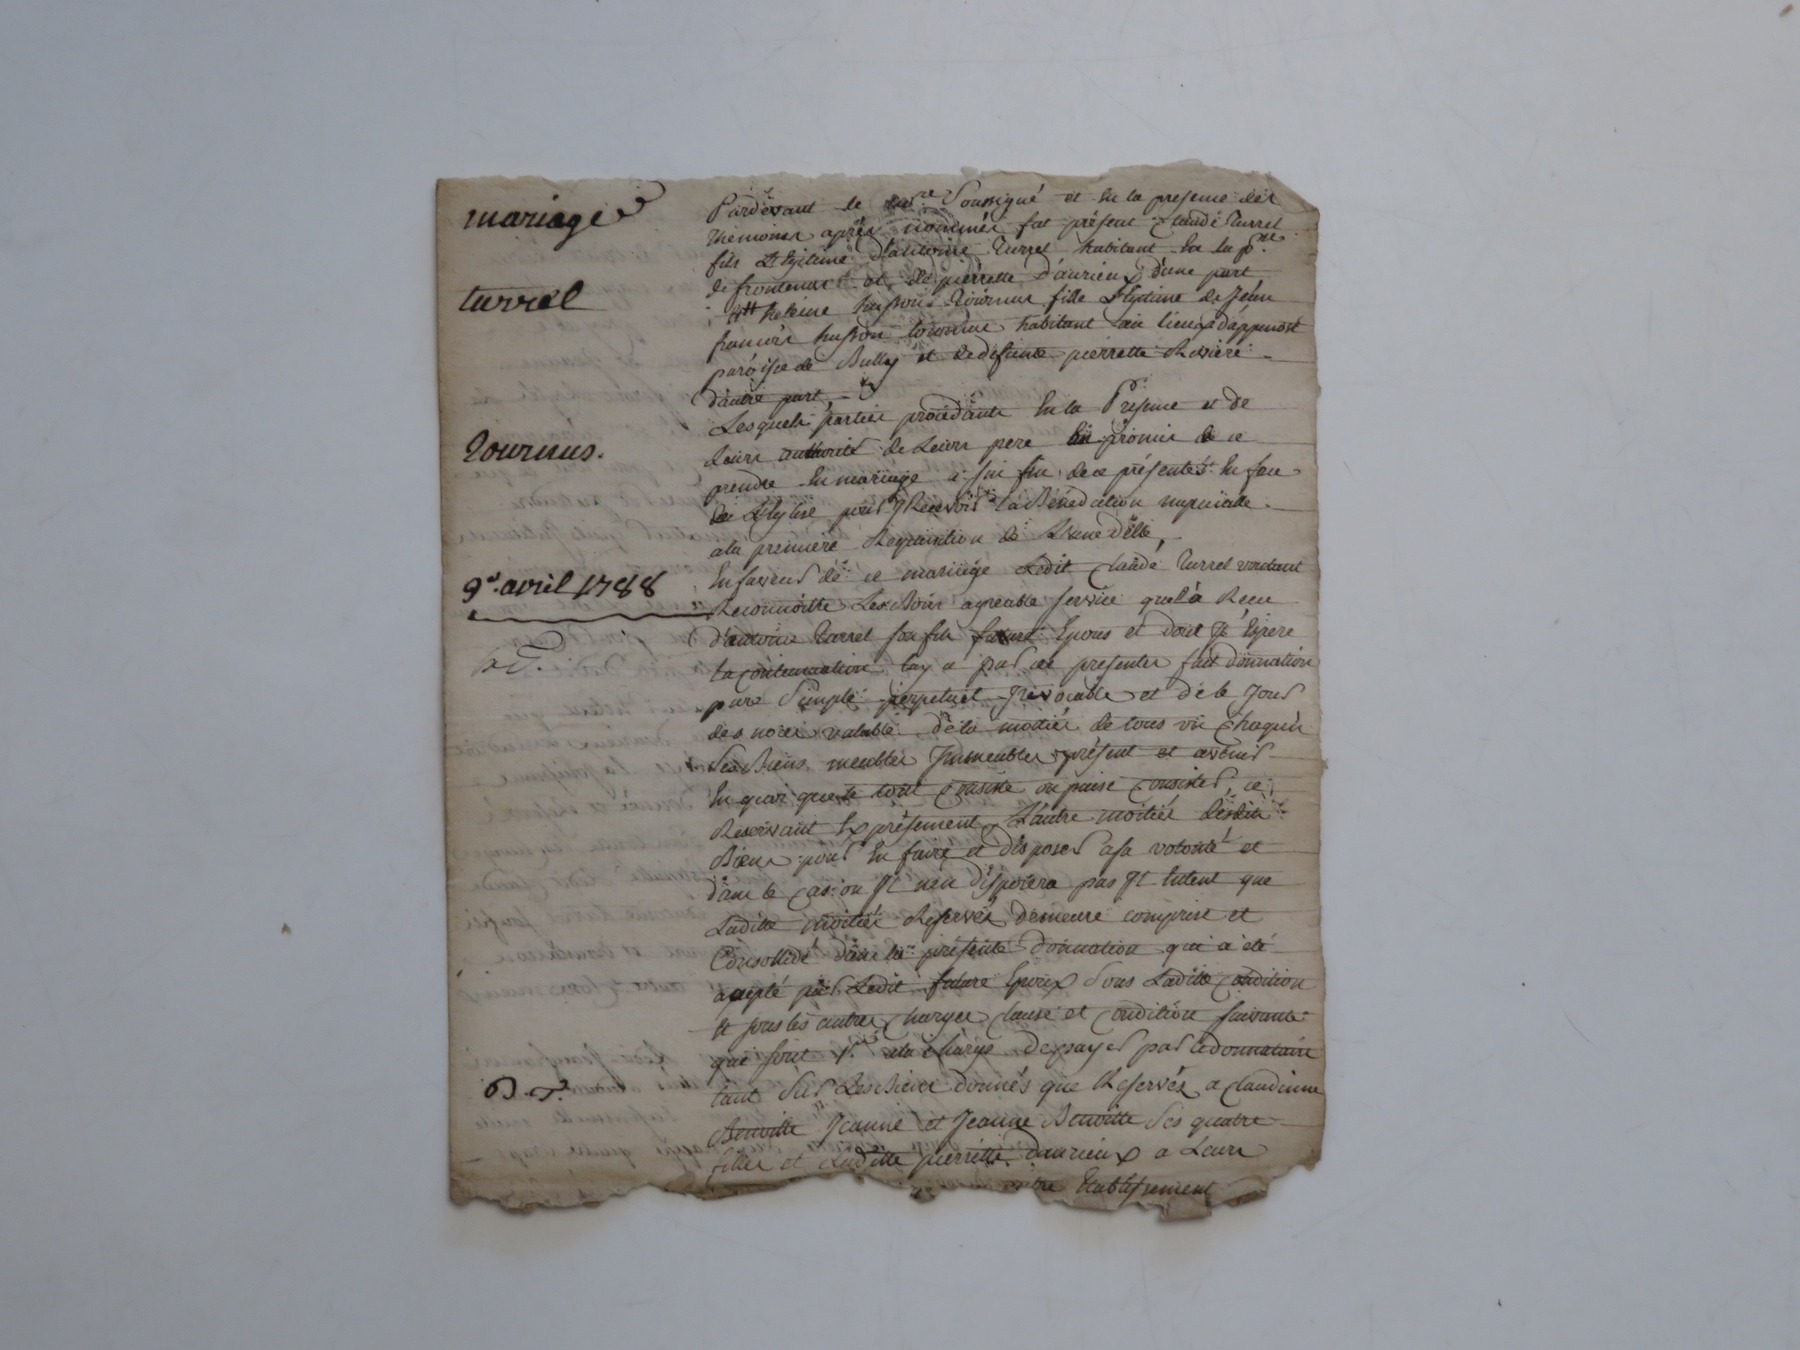 mariage
turrel
tournus.
9e. avril 1788
B T.
Pardevant le no.re Soussigné et En la presence des
themoins après nommés fut présent Claude turrel
fils Légitime d'antoine turrel habitant En la p.sse
de frontenas et de pierrette d'aurieux d'une part
fille Légitime de Jean
françois tournus habitant au lieu d'apinost
paroisse de Bully et de defunte pierrette Riviere
d'autre part
Lesquels parties procédants En la Présence et de
Leurs authorité de Leurs pere promis de ce
prendre En mariage à fin de ce présenter En face
de L'Eglise pour y Recevoir la Bénédiction nupciale
a la premiere Requisition de L'une d'Elle,
En faveur de ce mariage Ledit Claude turrel voulant
Reconnoitre Les Bons agreable service qu'il a Recu
d'antoine turrel son fils future Epoux et dont Il Espere
la continuation luy a par ce presenter fait donnation
pure Simple perpetuel Irrévocable et dè le Jour
des noces valable de la moitié de tous un Chaqu'un
Ses Biens meubles Immeubles présent et avenir
En quoi que le tout Consiste ou puise Consister, ce
Reservant Expresement L'autre moitié desdits
Biens pour En faire et disposer a sa volonté et
dans le Cas ou Il n'en disposera pas Il Entent que
Laditte moitiée Reservée demeure comprise et
Consollidé dans la présente donnation qui a été
acepté par Ledit future Epoux Sous Laditte Condition
Et sous les autres Charges Clause et Condition suivante
que sont 1.e a la Charge de payer par le donnataire
tant Sur Les Biens donnés que Reservés a Claudinne
Benoitte Jeanne et Jeanne Benoitte Ses quatre
filles et Laditte pierrette daurieux a Leurs
Etablissement